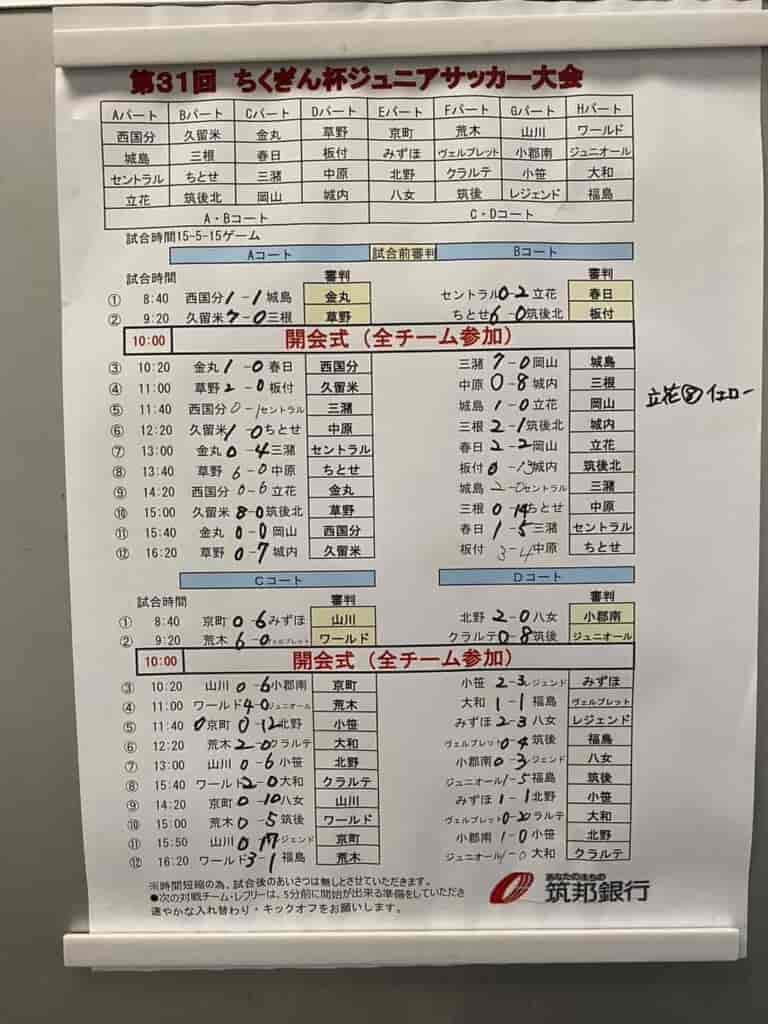 第31回 ちくぎん杯ジュニアサッカー大会
Aパート Bパート Cパート Dパート Eパート Fパート Gパート Hパート
西国分 久留米 金丸 草野 京町 荒木 山川 ワールド
城島 三根 春日 板付 みずほ ヴェルブレット 小郡南 ジュニオール
セントラル ちとせ 三潴 中原 北野 クラルテ 小笹 大和
立花 筑後北 岡山 城内 八女 筑後 レジェンド 福島
A・Bコート C・Dコート
試合時間15-5-15ゲーム
Aコート 試合前審判 Bコート
試合時間 審判 審判
① 8:40 西国分 1-1 城島 金丸 セントラル 0-2 立花 春日
② 9:20 久留米 7-0 三根 草野 ちとせ 6-0 筑後北 板付
10:00 開会式（全チーム参加）
③ 10:20 金丸 1-0 春日 西国分 三潴 7-0 岡山 城島
④ 11:00 草野 2-0 板付 久留米 中原 0-8 城内 三根
立花⑧イエロー
⑤ 11:40 西国分 0-1 セントラル 三潴 城島 1-0 立花 岡山
⑥ 12:20 久留米 1-0 ちとせ 中原 三根 2-1 筑後北 城内
⑦ 13:00 金丸 0-4 三潴 セントラル 春日 2-2 岡山 立花
⑧ 13:40 草野 6-0 中原 ちとせ 板付 0-13 城内 筑後北
⑨ 14:20 西国分 0-6 立花 金丸 城島 2-0 セントラル 三潴
⑩ 15:00 久留米 8-0 筑後北 草野 三根 0-14 ちとせ 中原
⑪ 15:40 金丸 0-0 岡山 西国分 春日 1-5 三潴 セントラル
⑫ 16:20 草野 0-7 城内 久留米 板付 3-4 中原 ちとせ
Cコート Dコート
試合時間 審判 審判
① 8:40 京町 0-6 みずほ 山川 北野 2-0 八女 小郡南
② 9:20 荒木 6-0 ヴェルブレット ワールド クラルテ 0-8 筑後 ジュニオール
10:00 開会式（全チーム参加）
③ 10:20 山川 0-6 小郡南 京町 小笹 2-3 ジェンド みずほ
④ 11:00 ワールド 4-0 ジュニオール 荒木 大和 1-1 福島 ヴェルブレット
⑤ 11:40 0 京町 0-12 北野 小笹 みずほ 2-3 八女 レジェンド
⑥ 12:20 荒木 2-0 クラルテ 大和 ヴェルブレット 0-4 筑後 福島
⑦ 13:00 山川 0-6 小笹 北野 小郡南 0-3 ジェンド 八女
⑧ 15:40 ワールド 2-0 大和 クラルテ ジュニオール 1-5 福島 筑後
⑨ 14:20 京町 0-10 八女 山川 みずほ 1-1 北野 小笹
⑩ 15:00 荒木 0-5 筑後 ワールド ヴェルブレット 0-20 ラルテ 大和
⑪ 15:50 山川 0-17 ジェンド 京町 小郡南 1-0 小笹 北野
⑫ 16:20 ワールド 3-1 福島 荒木 ジュニオール 1-0 大和 クラルテ
※時間短縮の為、試合後のあいさつは無しとさせていただきます。
●次の対戦チーム・レフリーは、5分前に開始が出来る準備をしていただき
速やかな入れ替わり・キックオフをお願いします。
あなたのまちの
筑邦銀行